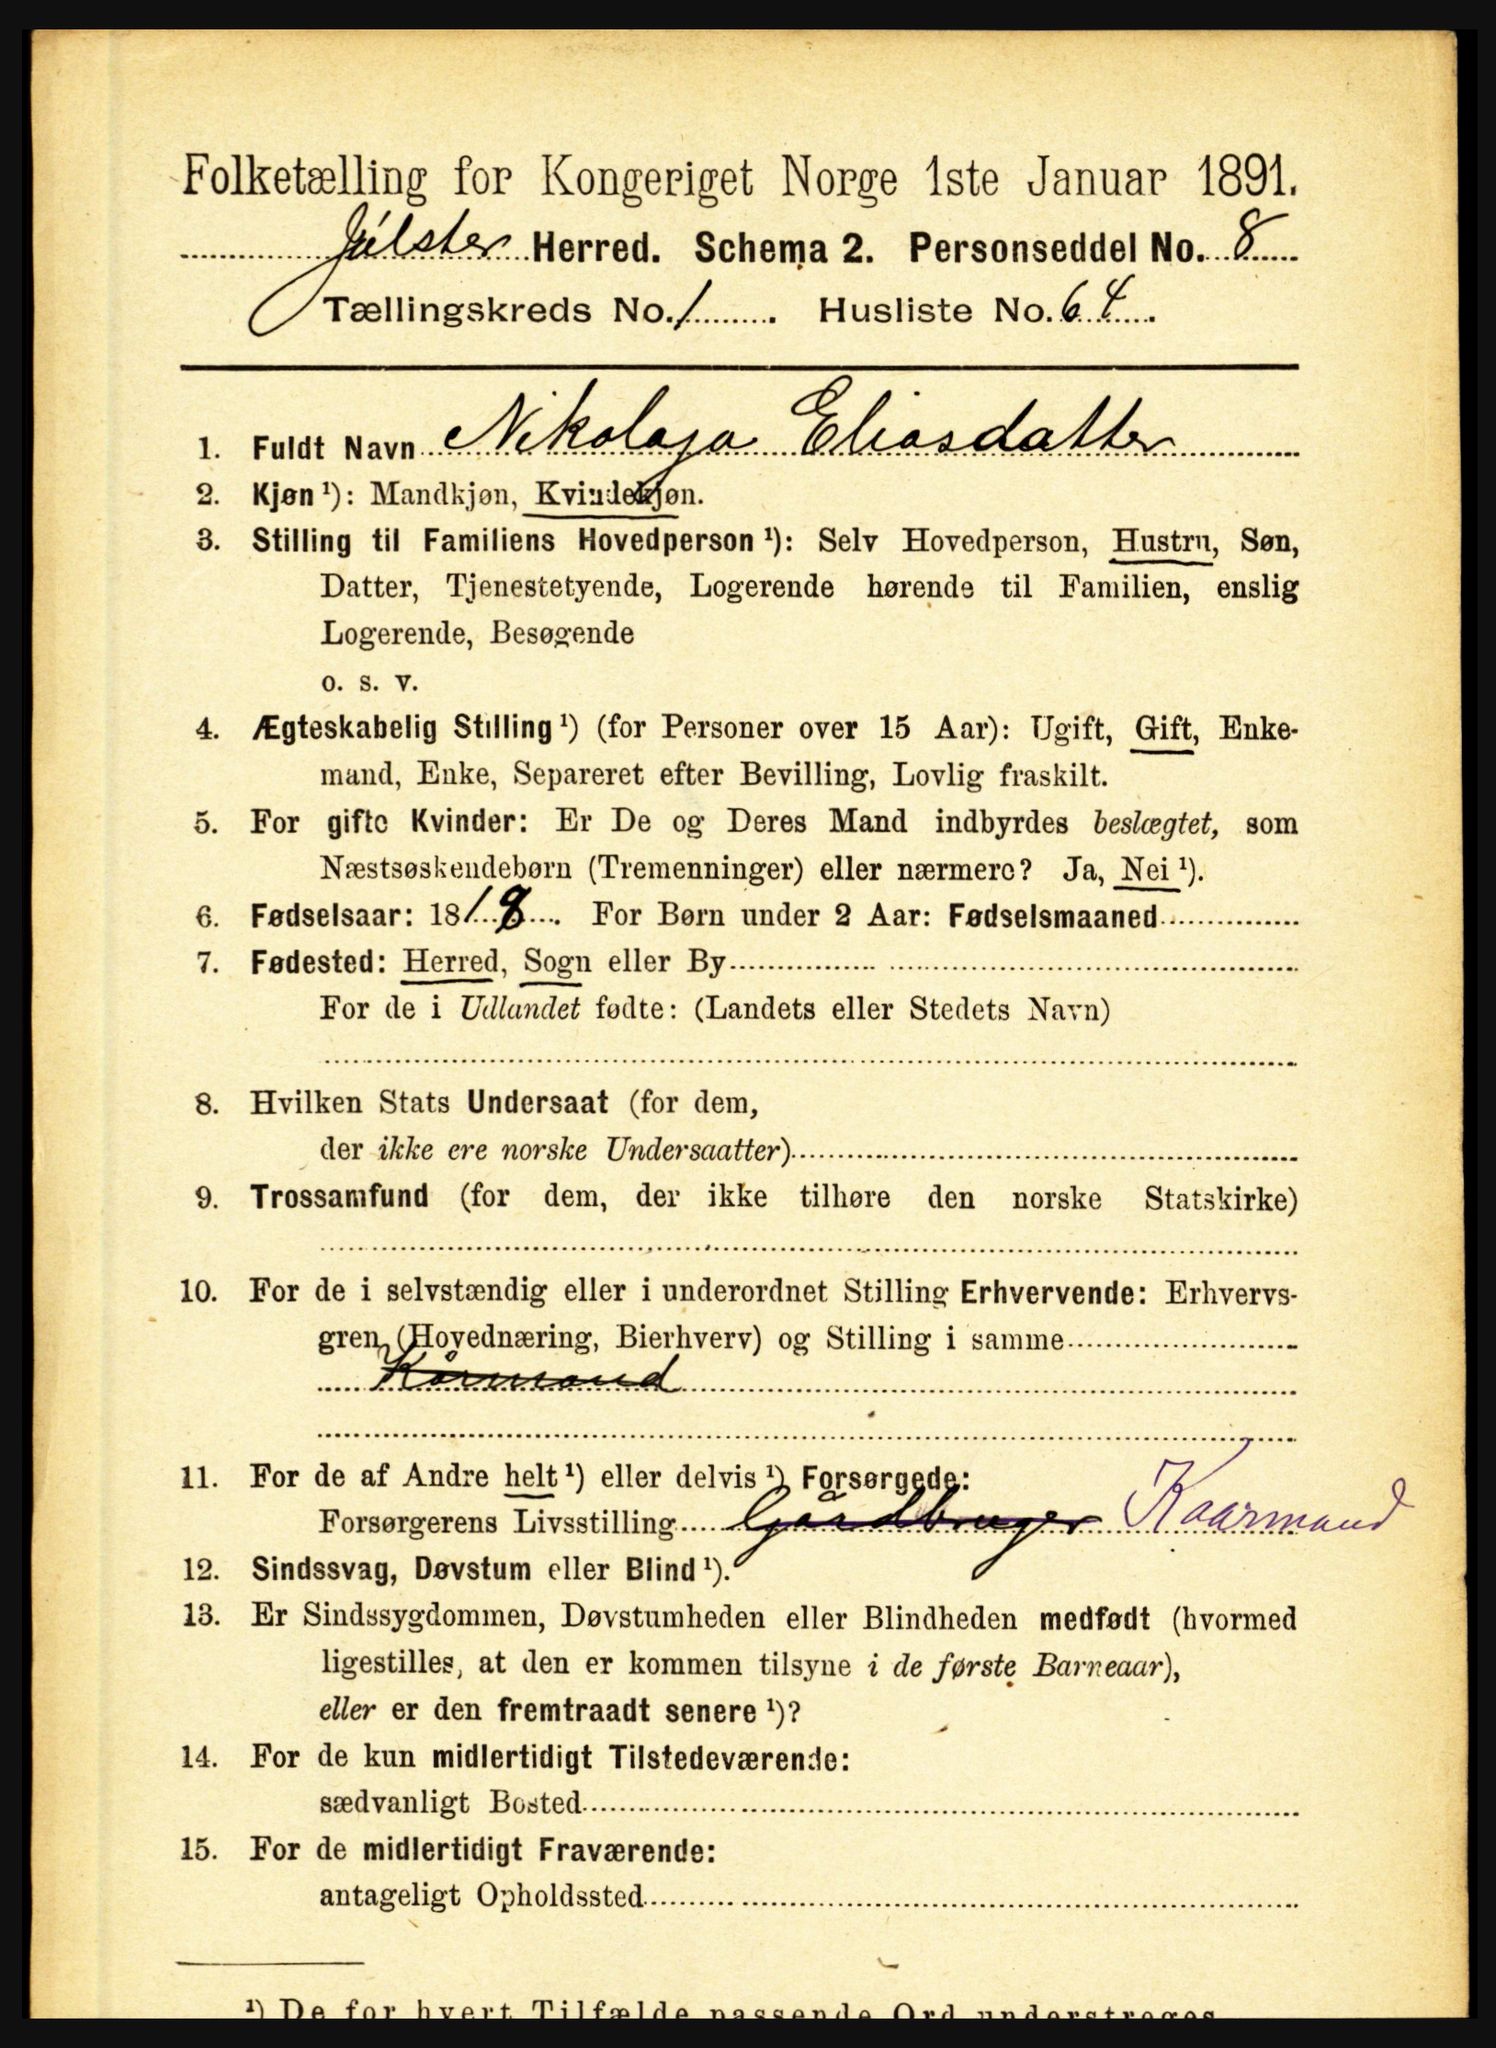 Folketælling for Kongeriget Norge 1ste Januar 1891.
Jølster Herred. Schema 2. Personseddel No. 8
Tællingskreds No. 1. Husliste No. 64.
1. Fuldt Navn Nikolaja Eliasdatter
2. Kjøn ¹): Mandkjøn, Kvindekjøn.
3. Stilling til Familiens Hovedperson ¹): Selv Hovedperson, Hustru, Søn,
Datter, Tjenestetyende, Logerende hørende til Familien, enslig
Logerende, Besøgende
o. s. v.
4. Ægteskabelig Stilling ¹) (for Personer over 15 Aar): Ugift, Gift, Enke-
mand, Enke, Separeret efter Bevilling, Lovlig fraskilt.
5. For gifte Kvinder: Er De og Deres Mand indbyrdes beslægtet, som
Næstsøskendebørn (Tremenninger) eller nærmere? Ja, Nei ¹).
6. Fødselsaar: 1818. For Børn under 2 Aar: Fødselsmaaned
7. Fødested: Herred, Sogn eller By
For de i Udlandet fødte: (Landets eller Stedets Navn)
8. Hvilken Stats Undersaat (for dem,
der ikke ere norske Undersaatter)
9. Trossamfund (for dem, der ikke tilhøre den norske Statskirke)
10. For de i selvstændig eller i underordnet Stilling Erhvervende: Erhvervs-
gren (Hovednæring, Bierhverv) og Stilling i samme
Kårmand
11. For de af Andre helt ¹) eller delvis ¹) Forsørgede:
Forsørgerens Livsstilling Gårdbruger Kaarmand
12. Sindssvag, Døvstum eller Blind ¹).
13. Er Sindssygdommen, Døvstumheden eller Blindheden medfødt (hvormed
ligestilles, at den er kommen tilsyne i de første Barneaar),
eller er den fremtraadt senere ¹)?
14. For de kun midlertidigt Tilstedeværende:
sædvanligt Bosted
15. For de midlertidigt Fraværende:
antageligt Opholdssted
¹) De for hvert Tilfælde passende Ord understreges